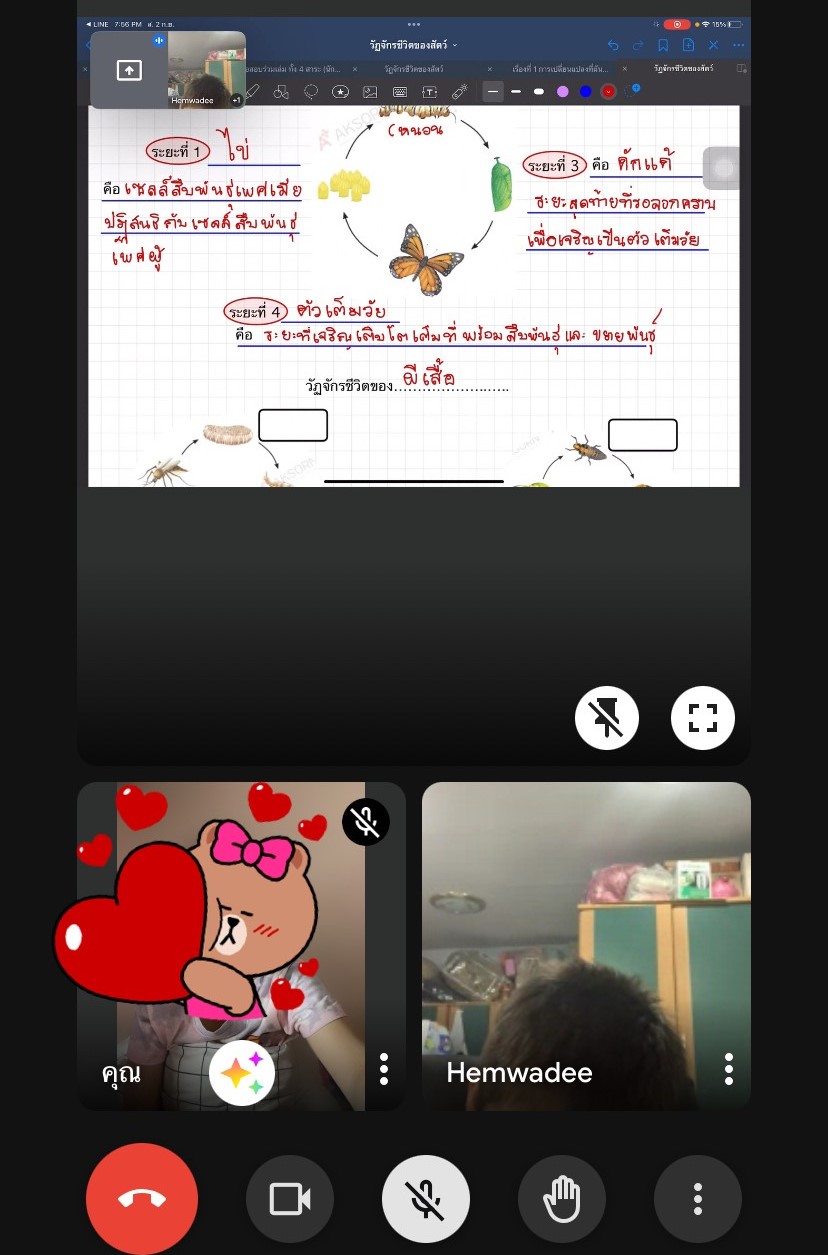 LINE 7:56 PM ส. 2 ก.ย. 15%
วัฏจักรชีวิตของสัตว์
อสอบร่วมเล่ม ทั้ง 4 สาระ (นัก... วัฏจักรชีวิตของสัตว์ เรื่องที่ 1 การเปลี่ยนแปลงที่ค้น... วัฏจักรชีวิตของสัตว์
Hemwadee +1
AKSORN
(หนอน
ระยะที่ 1 ไข่
คือ เซลล์สืบพันธุ์เพศเมีย
ปฏิสนธิกับเซลล์สืบพันธุ์
เพศผู้
ระยะที่ 3 คือ ดักแด้
ระยะสุดท้ายที่รอลอกคราบ
เพื่อเจริญเป็นตัวเต็มวัย
ระยะที่ 4 ตัวเต็มวัย
คือ ระยะที่เจริญเติบโตเต็มที่ พร้อมสืบพันธุ์และ ขยายพันธุ์
วัฏจักรชีวิตของ........................ผีเสื้อ
AKSORN
คุณ
Hemwadee